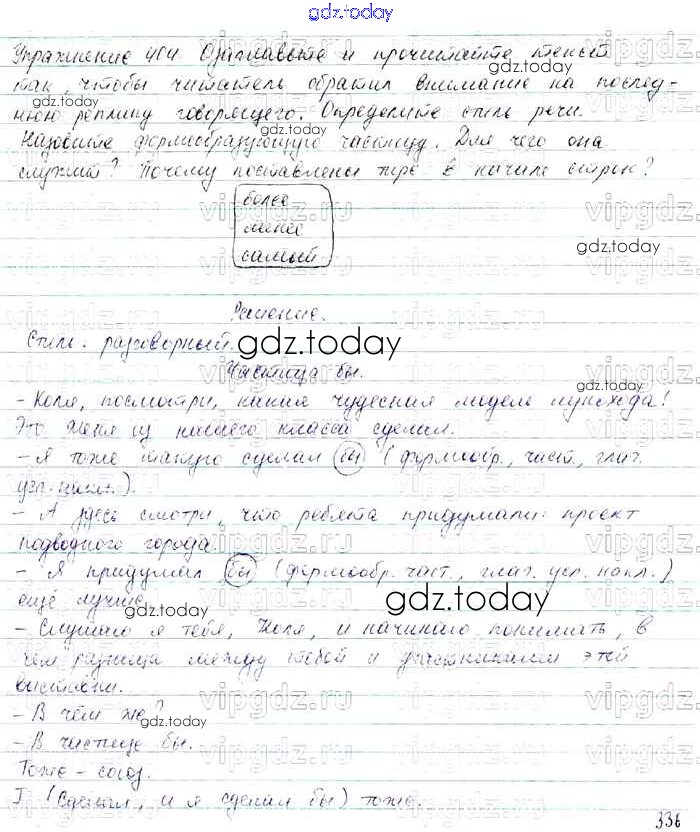 gdz.today
Упражнение 404. Озаглавьте и прочитайте текст
так, чтобы читатель обратил внимание на послед-
нюю реплику говорящего. Определите стиль речи.
Назовите формообразующую частицу. Для чего она
служит? Почему поставлены тире в начале строк?
более
менее
самый
Решение.
Стиль: разговорный.
Частица бы.
- Коля, посмотри, какая чудесная модель лунохода!
Это Женя из нашего класса сделал.
- Я тоже такую сделал бы (формообр., част., глаг.
усл. накл.).
- А здесь смотри, что ребята придумали: проект
подводного города.
- Я придумал бы (формообр. част., глаг. усл. накл.)
ещё лучше.
- Слушаю я тебя, Коля, и начинаю понимать, в
чём разница между тобой и участниками этой
выставки.
- В чём же?
- В частице бы.
Тоже - союз.
I (Сделал, и я сделал бы) тоже.
336